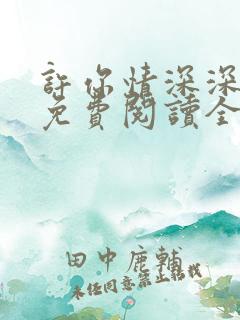 許你情深深
免費閱讀全
田中鹿輔
未任同意禁止轉載